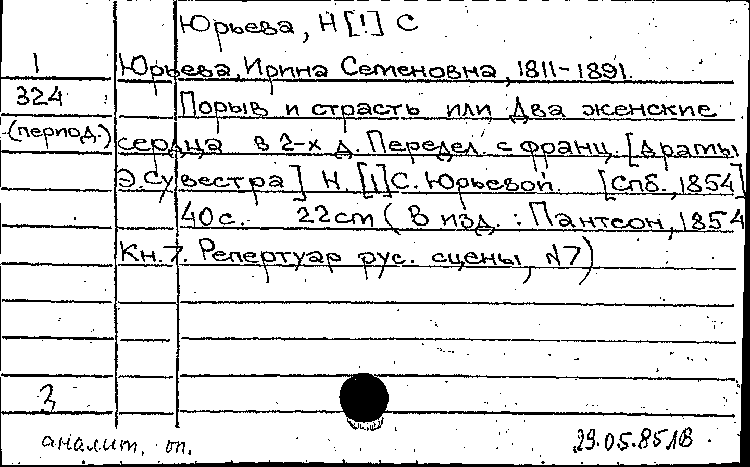 Юрьева, Н [!] С
1 Юрьева, Ирина Семеновна, 1811-1891.
324 Порыв и страсть или Два женские
(период.) сердца в 2-х д. Передел. с франц. [драмы
Э. Сувестра] Н. [!] С. Юрьевой. [Спб., 1854]
40 с. 22 cm (В изд.: Пантеон, 1854
Кн. 7. Репертуар рус. сцены, N7)
3
аналит. оп. 29.05.85